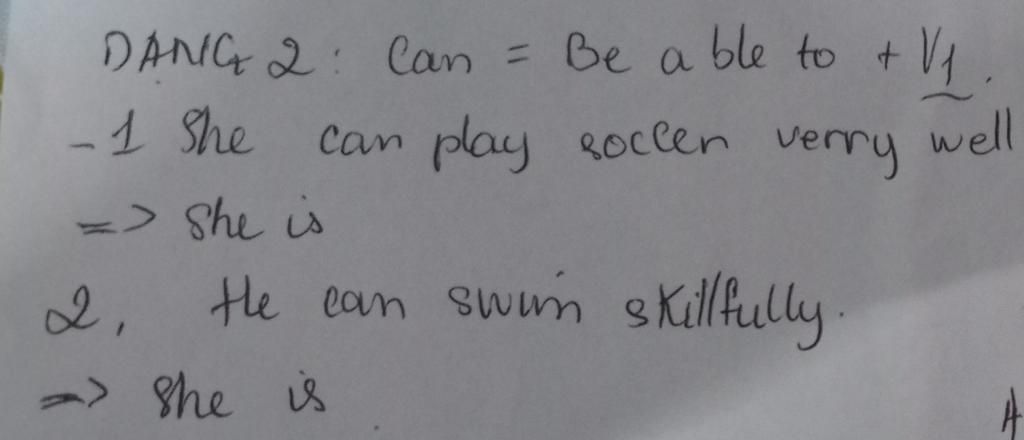 DANG 2: Can = Be able to + V1.
- 1 She can play soccer verry well
=> she is
2, He can swim skillfully.
=> she is